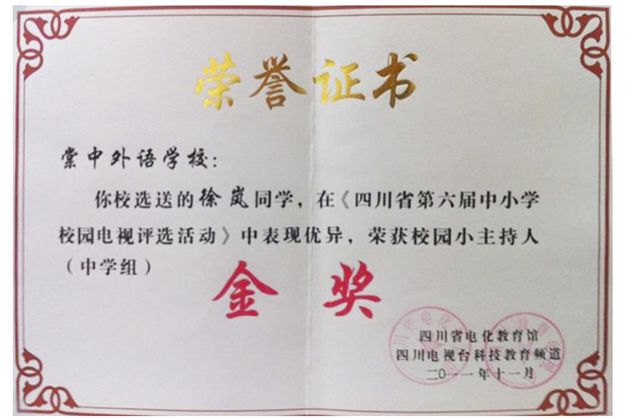 荣誉证书
棠中外语学校：
你校选送的徐岚同学，在《四川省第六届中小学
校园电视评选活动》中表现优异，荣获校园小主持人
（中学组）
金奖
四川省电化教育馆
四川电视台科技教育频道
二〇一一年十一月